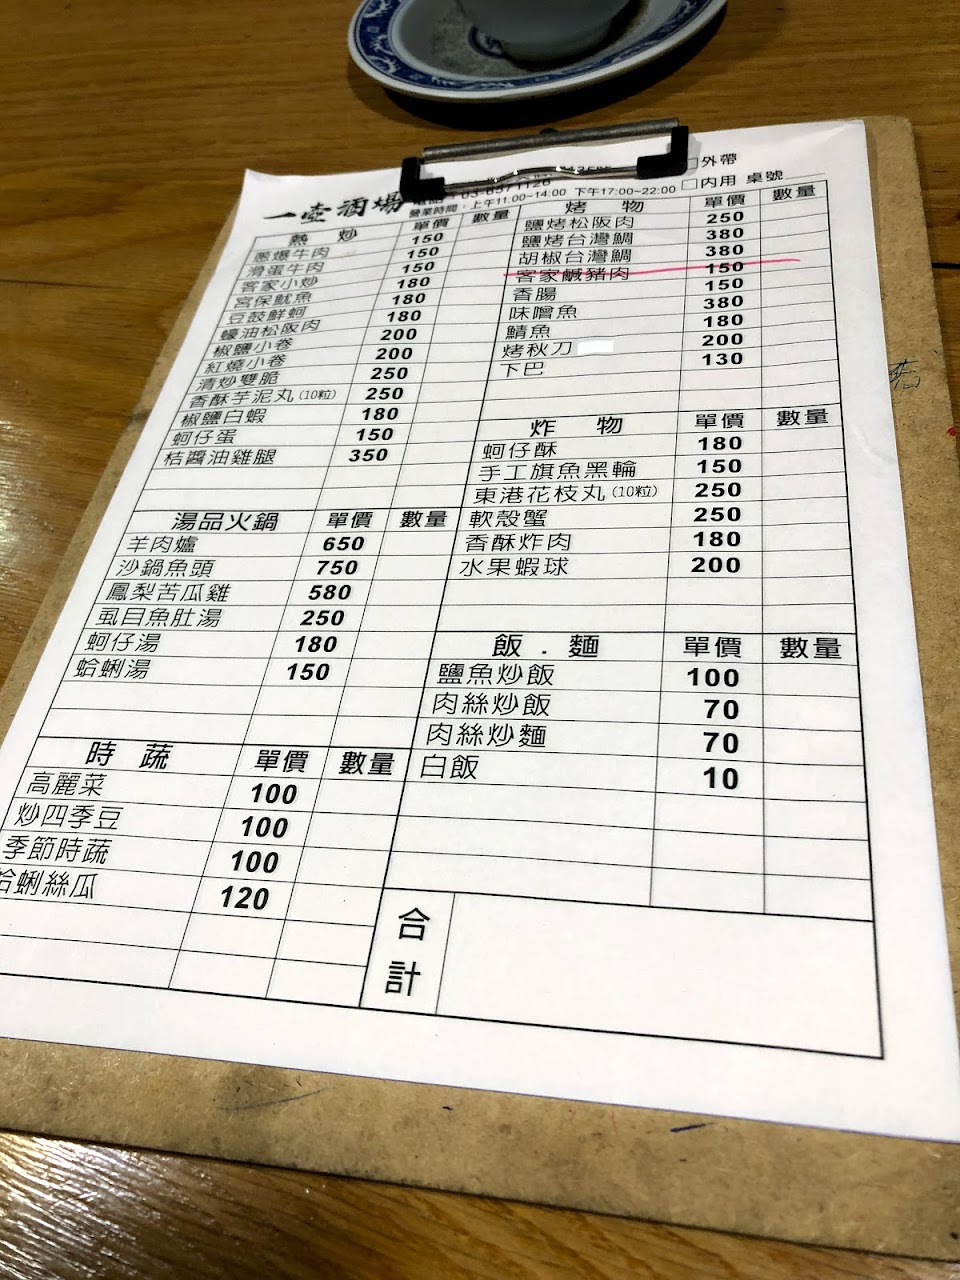 一壺酒場
營業時間：上午11:00~14:00 下午17:00~22:00
□外帶
□內用 桌號
熱 炒 單價 數量
蔥爆牛肉 150
滑蛋牛肉 150
客家小炒 150
宮保魷魚 180
豆鼓鮮蚵 180
蠔油松阪肉 180
椒鹽小卷 200
紅燒小卷 200
清炒雙脆 250
香酥芋泥丸(10粒) 250
椒鹽白蝦 180
蚵仔蛋 150
桔醬油雞腿 350
湯品火鍋 單價 數量
羊肉爐 650
沙鍋魚頭 750
鳳梨苦瓜雞 580
虱目魚肚湯 250
蚵仔湯 180
蛤蜊湯 150
時 蔬 單價 數量
高麗菜 100
炒四季豆 100
季節時蔬 100
蛤蜊絲瓜 120
烤 物 單價 數量
鹽烤松阪肉 250
鹽烤台灣鯛 380
胡椒台灣鯛 380
客家鹹豬肉 150
香腸 150
味噌魚 380
鯖魚 180
烤秋刀 200
下巴 130
炸 物 單價 數量
蚵仔酥 180
手工旗魚黑輪 150
東港花枝丸(10粒) 250
軟殼蟹 250
香酥炸肉 180
水果蝦球 200
飯．麵 單價 數量
鹽魚炒飯 100
肉絲炒飯 70
肉絲炒麵 70
白飯 10
合計